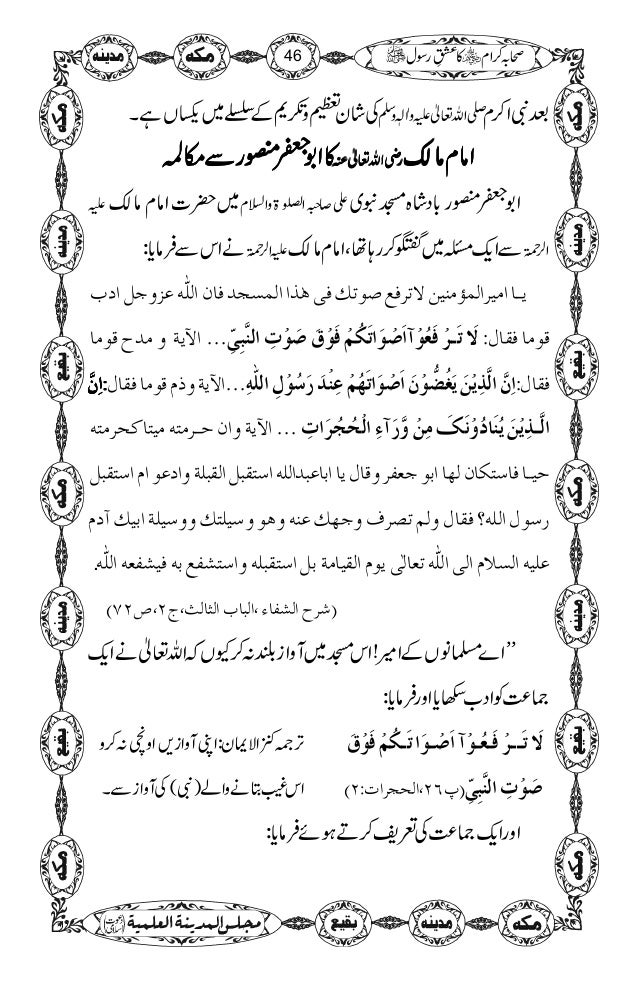 صحابہ کرام رضی اللہ عنہم کا عشقِ رسول صلی اللہ علیہ وسلم
46
مکه
مدینه
بعد نبی اکرم صلی اللہ تعالیٰ علیہ والہ وسلم کی شان تعظیم و تکریم کے سلسلے میں یکساں ہے۔
امام مالک رضی اللہ تعالیٰ عنہ کا ابو جعفر منصور سے مکالمہ
ابو جعفر منصور بادشاہ مسجد نبوی علی صاحبہ الصلوۃ والسلام میں حضرت امام مالک علیہ
الرحمۃ سے ایک مسئلہ میں گفتگو کر رہا تھا، امام مالک علیہ الرحمۃ نے اس سے فرمایا:
یا امیرالمؤمنین لاترفع صوتك فی هٰذا المسجد فان الله عزوجل ادب
قوما فقال: لَا تَرْ فَعُوْۤا اَصْوَاتَكُمْ فَوْقَ صَوْتِ النَّبِيِّ... الآیة و مدح قوما
فقال: اِنَّ الَّذِیْنَ یَغُضُّوْنَ اَصْوَاتَهُمْ عِنْدَ رَسُوْلِ اللّٰهِ...الآیة وذم قوما فقال: اِنَّ
الَّذِیْنَ یُنَادُوْنَكَ مِنْ وَّرَآءِ الْحُجُرَاتِ ... الآیة وان حرمته میتا کحرمته
حیا فاستکان لها ابو جعفر وقال یا اباعبدالله استقبل القبلة وادعو ام استقبل
رسول الله؟ فقال ولم تصرف وجهك عنه وهو وسیلتك ووسیلة ابیك آدم
علیه السلام الی الله تعالٰی یوم القیامة بل استقبله واستشفع به فیشفعه الله.
(شرح الشفاء ،الباب الثالث،ج۲،ص۷۲)
’’اے مسلمانوں کے امیر! اس مسجد میں آواز بلند نہ کر کیوں کہ اللہ تعالیٰ نے ایک
جماعت کو ادب سکھایا اور فرمایا:
لَا تَرْ فَعُوْۤا اَصْوَاتَكُمْ فَوْقَ ترجمہ کنز الایمان: اپنی آوازیں اونچی نہ کرو
صَوْتِ النَّبِيِّ (پ۲۶،الحجرات:۲) اس غیب بتانے والے (نبی) کی آواز سے۔
اور ایک جماعت کی تعریف کرتے ہوئے فرمایا:
مکه
مدینه
بقیع
مکه
مدینه
بقیع
مکه
مکه
مدینه
بقیع
مکه
مدینه
بقیع
مکه
مکه
مدینه
بقیع
مجلس المدینة العلمیة